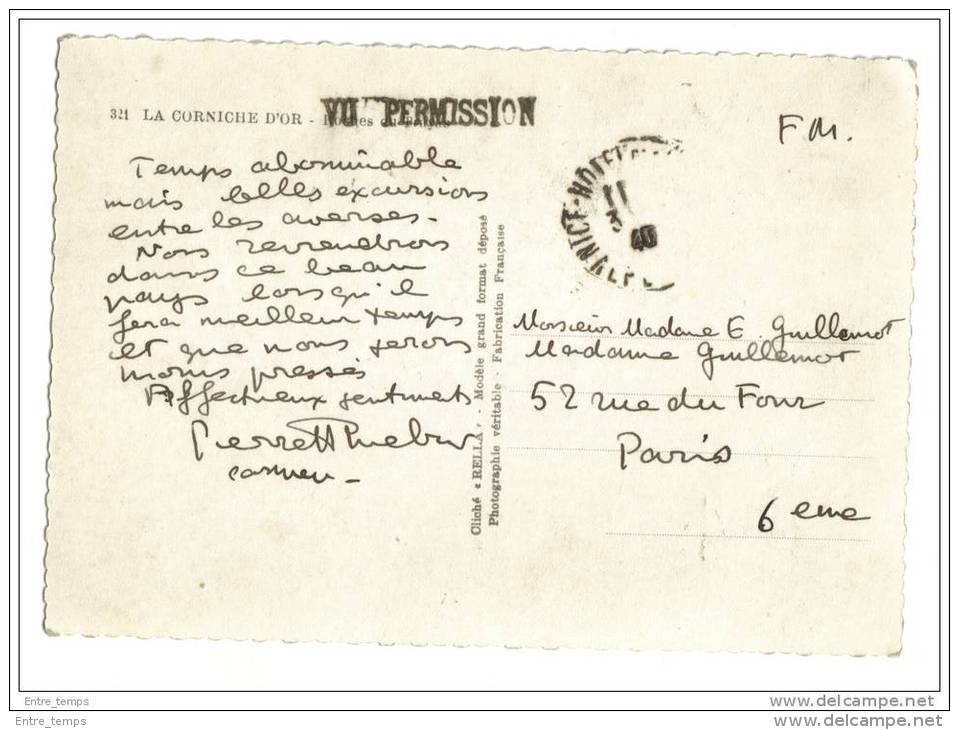 321 LA CORNICHE D'OR -
VU PERMISSION
F M.
Temps abominable
mais belles excursions
entre les averses.
Nous reviendrons
dans ce beau
pays lorsqu'il
fera meilleur temps
et que nous serons
moins pressés
Affectueux sentiments
Pierre
NICE-HOTEL
11
3
40
Cliché « RELLA » - Modèle grand format déposé
Photographie véritable - Fabrication Française
Monsieur Madame E. Guillemot
Madame Guillemot
52 rue du Four
Paris
6 eme
Entre_temps
Entre_temps
www.delcampe.net
www.delcampe.net